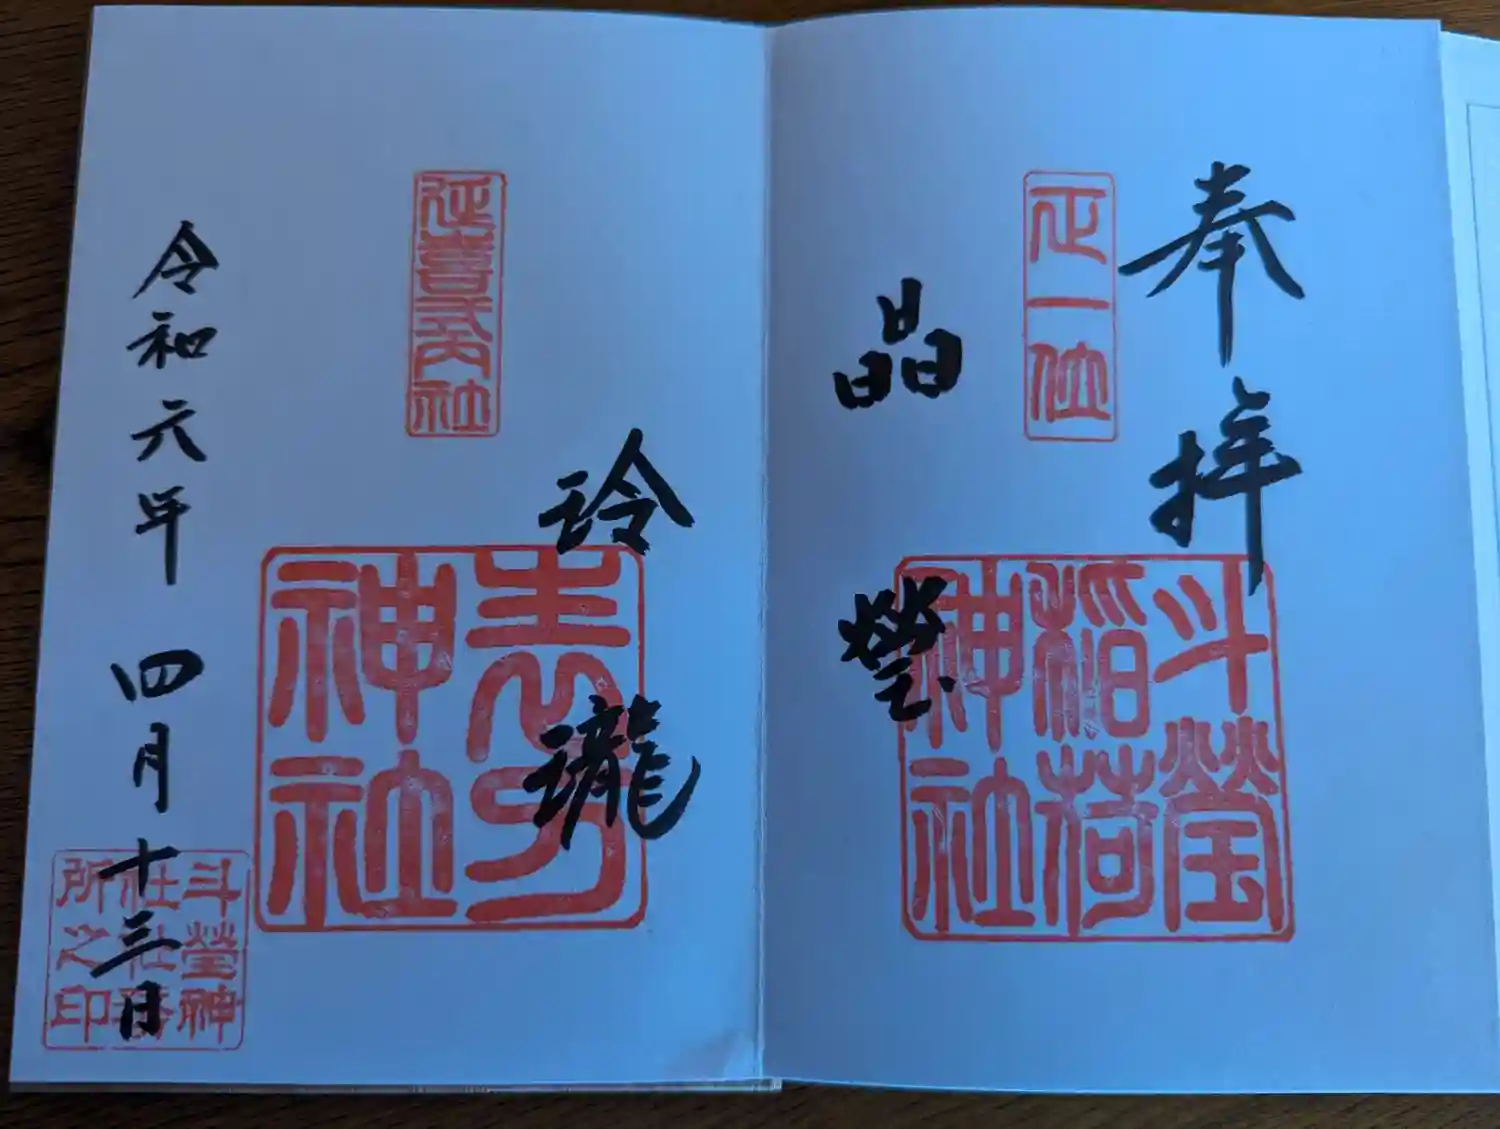 奉拝
正一位
斗瑩
稲荷
神社
晶瑩
玲瓏
延喜式内社
表刀
神社
令和六年四月十三日
斗瑩神
社社務
所之印